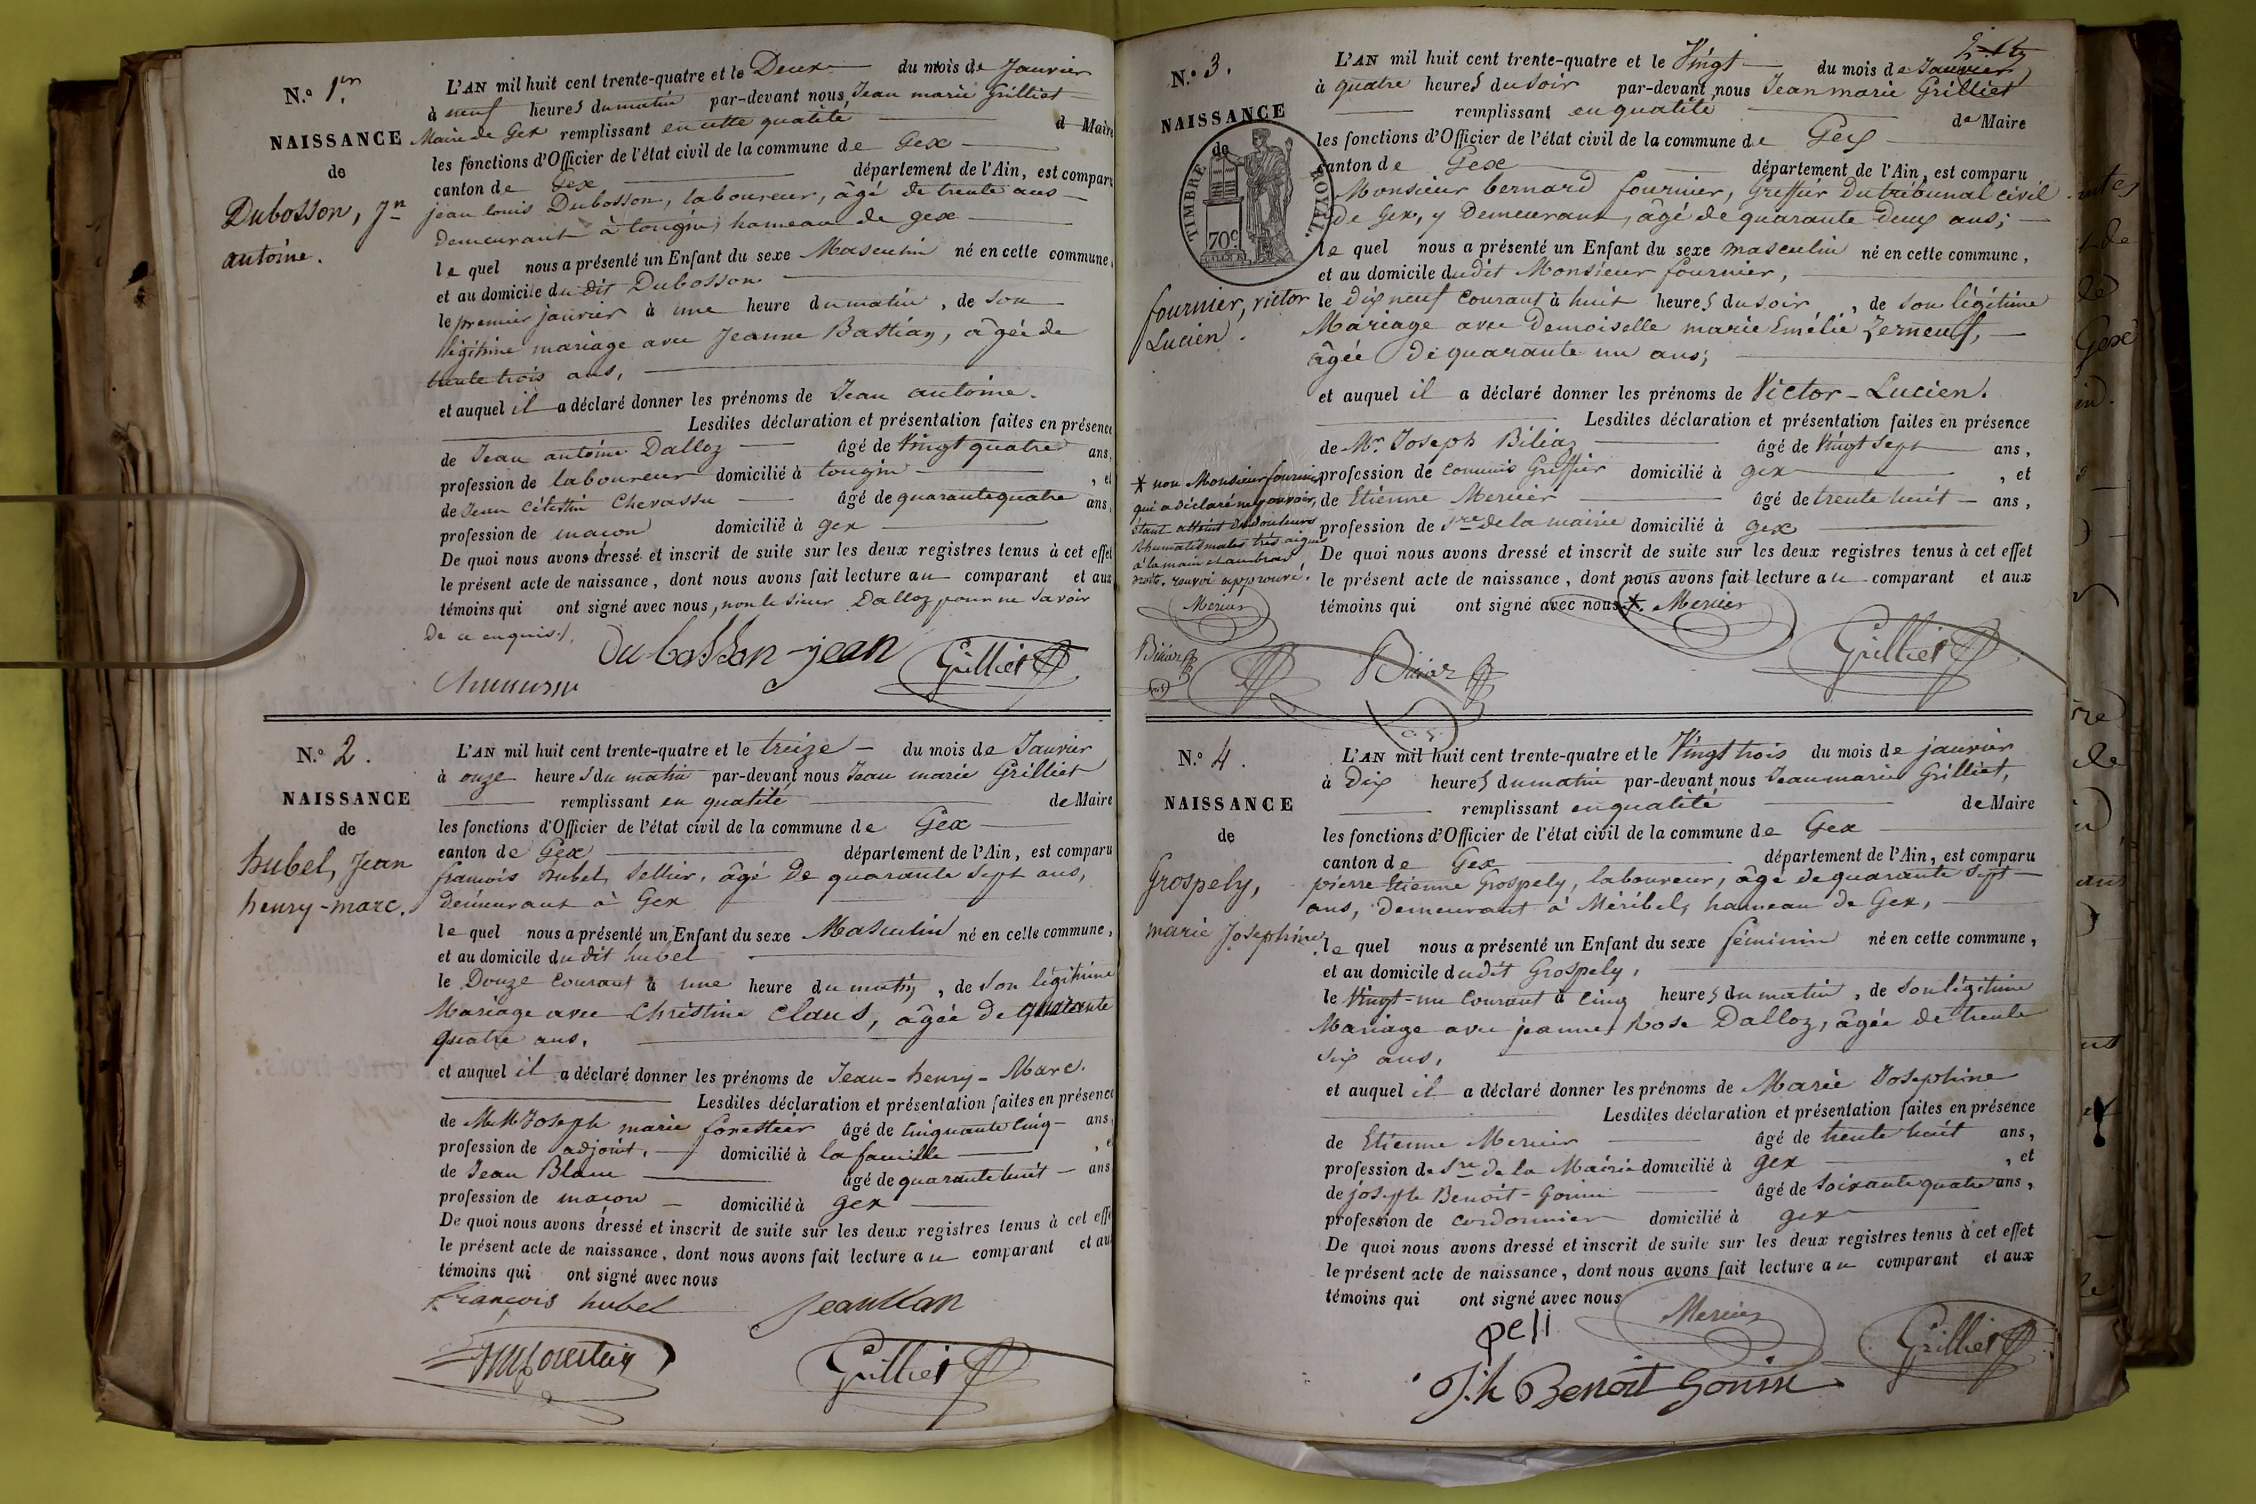 N.º 1.er
NAISSANCE
de
Dubosson, jn
antoine.
L'AN mil huit cent trente-quatre et le Deux du mois de Janvier
à neuf heures du matin par-devant nous, Jean marie Grilliet
Maire de Gex remplissant en cette qualité d Maire
les fonctions d'Officier de l'état civil de la commune de Gex
canton de Gex département de l'Ain, est comparu
jean louis Dubosson, laboureur, âgé de trente ans
demeurant à tougin, hameau de gex
le quel nous a présenté un Enfant du sexe Masculin né en cette commune,
et au domicile du dit Dubosson
le premier janvier à une heure du matin, de son
légitime mariage avec Jeanne Bastian, âgée de
trente trois ans,
et auquel il a déclaré donner les prénoms de Jean antoine.
Lesdites déclaration et présentation faites en présence
de Jean antoine Dalloz âgé de Vingt quatre ans,
profession de laboureur domicilié à tougin, et
de Jean Célestin Chevassu âgé de quarante quatre ans,
profession de maçon domicilié à gex
De quoi nous avons dressé et inscrit de suite sur les deux registres tenus à cet effet
le présent acte de naissance, dont nous avons fait lecture au comparant et aux
témoins qui ont signé avec nous, non le sieur Dalloz pour ne savoir
de ce enquis./.
Dubosson jean Grilliet
N.º 2.
NAISSANCE
de
hubel, Jean
henry-marc.
L'AN mil huit cent trente-quatre et le treize du mois de Janvier
à onze heures du matin par-devant nous Jean marie Grilliet
remplissant en qualité de Maire
les fonctions d'Officier de l'état civil de la commune de Gex
canton de Gex département de l'Ain, est comparu
françois hubel, Sellier, âgé de quarante sept ans,
demeurant à Gex
le quel nous a présenté un Enfant du sexe Masculin né en cette commune,
et au domicile du dit hubel
le Douze courant à une heure du matin, de son légitime
Mariage avec Christine Claus, âgée de quarante
quatre ans.
et auquel il a déclaré donner les prénoms de Jean-henry-Marc.
Lesdites déclaration et présentation faites en présence
de MM Joseph marie forestier âgé de cinquante cinq ans,
profession de adjoint, domicilié à la faucille, e
de Jean Blanc âgé de quarante huit ans
profession de maçon domicilié à gex
De quoi nous avons dressé et inscrit de suite sur les deux registres tenus à cet effe
le présent acte de naissance, dont nous avons fait lecture au comparant et au
témoins qui ont signé avec nous
françois hubel
Grilliet
N.º 3.
NAISSANCE
de
TIMBRE ROYAL.
70c
fournier, victor
Lucien.
L'AN mil huit cent trente-quatre et le Vingt du mois de Janvier
à quatre heures du soir par-devant nous Jean marie Grilliet
remplissant en qualité de Maire
les fonctions d'Officier de l'état civil de la commune de Gex
canton de Gex département de l'Ain, est comparu
Monsieur bernard fournier, Greffier du tribunal civil
de Gex, y demeurant, âgé de quarante deux ans;
le quel nous a présenté un Enfant du sexe masculin né en cette commune,
et au domicile dudit Monsieur fournier,
le Dix neuf courant à huit heures du soir, de son légitime
Mariage avec Demoiselle marie Emélie
âgée de quarante un ans;
et auquel il a déclaré donner les prénoms de Victor-Lucien.
Lesdites déclaration et présentation faites en présence
de Mr. Joseph âgé de Vingt sept ans,
profession de commis Greffier domicilié à gex, et
de Etienne Mercier âgé de trente huit ans,
profession de Sre de la mairie domicilié à gex
De quoi nous avons dressé et inscrit de suite sur les deux registres tenus à cet effet
le présent acte de naissance, dont nous avons fait lecture au comparant et aux
témoins qui ont signé avec nous *. Mercier
* non Monsieur fournier
qui a déclaré ne pouvoir,
étant atteint de douleurs
rhumatismales très aigues
à la main et au bras
droits. renvoi approuvé.
Mercier
Grilliet
N.º 4.
NAISSANCE
de
Grospely,
marie Josephine.
L'AN mil huit cent trente-quatre et le Vingt trois du mois de janvier
à Dix heures du matin par-devant nous Jean marie Grilliet,
remplissant en qualité de Maire
les fonctions d'Officier de l'état civil de la commune de Gex
canton de Gex département de l'Ain, est comparu
pierre Etienne Grospely, laboureur, âgé de quarante sept
ans, demeurant à Méribel, hameau de Gex,
le quel nous a présenté un Enfant du sexe féminin né en cette commune,
et au domicile dudit Grospely,
le Vingt-un courant à cinq heures du matin, de son légitime
Mariage avec jeanne Rose Dalloz, âgée de trente
six ans,
et auquel il a déclaré donner les prénoms de Marie Josephine
Lesdites déclaration et présentation faites en présence
de Etienne Mercier âgé de trente huit ans,
profession de Sre de la Mairie domicilié à gex, et
de joseph Benoit-Gonin âgé de soixante quatre ans,
profession de cordonnier domicilié à gex
De quoi nous avons dressé et inscrit de suite sur les deux registres tenus à cet effet
le présent acte de naissance, dont nous avons fait lecture au comparant et aux
témoins qui ont signé avec nous
peli Mercier Grilliet
J.h Benoit Gonin